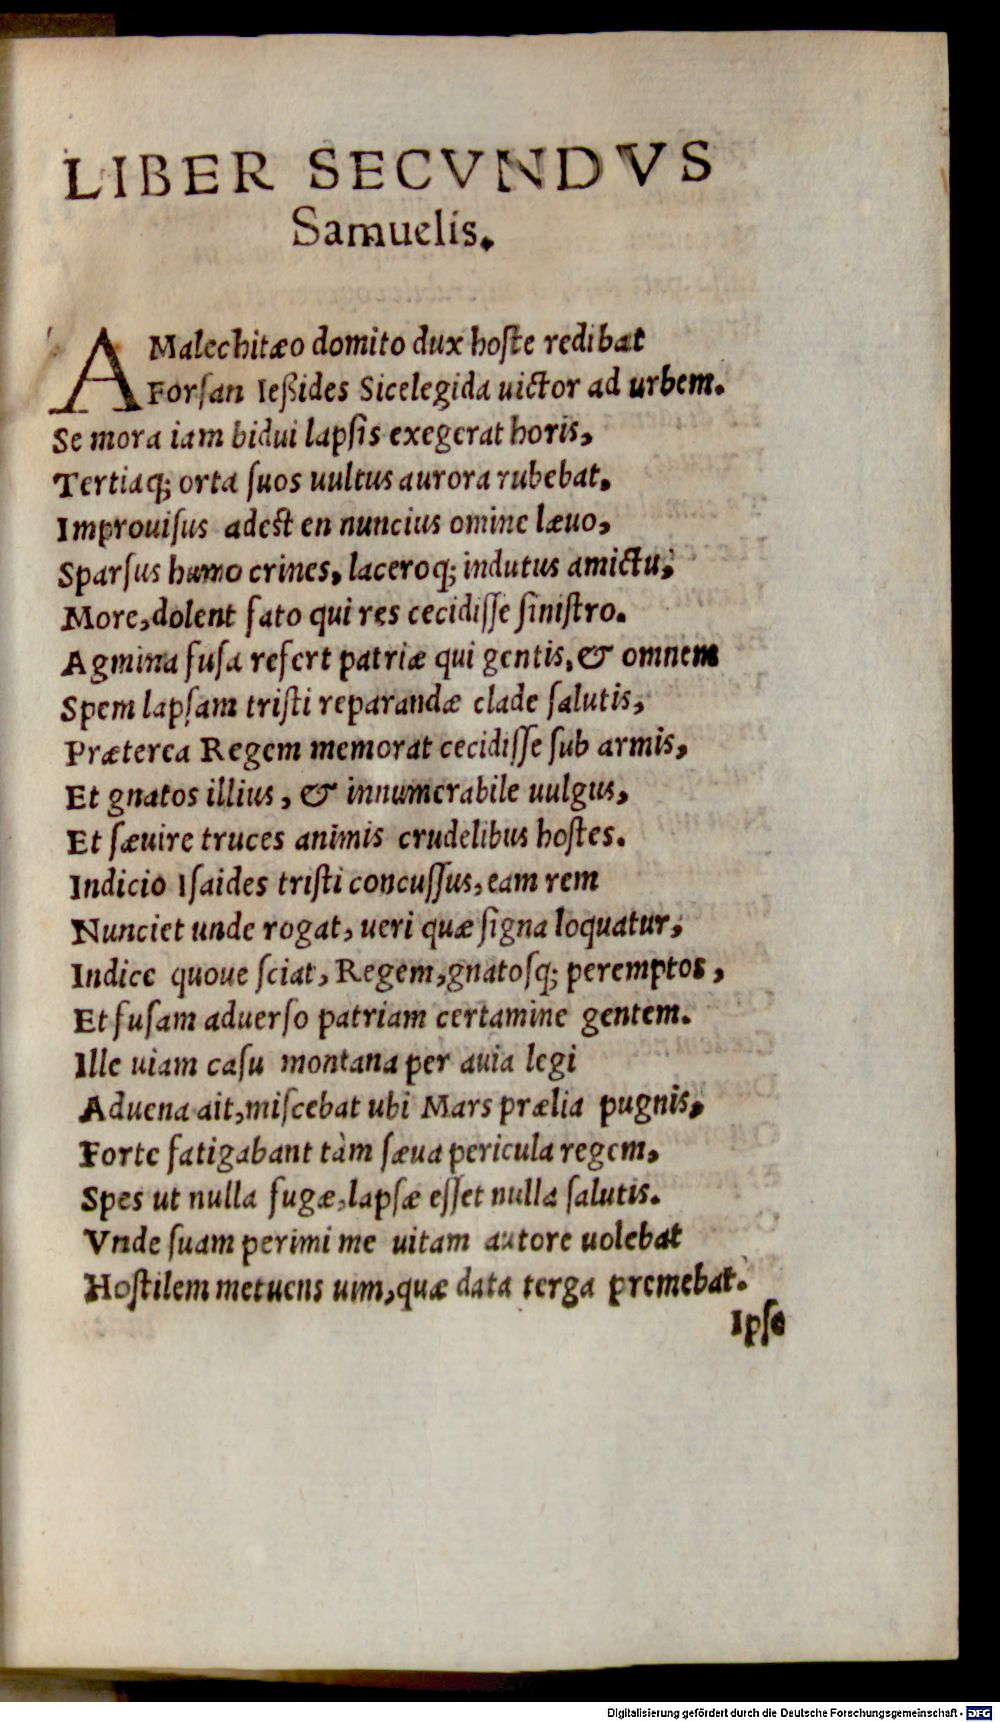 LIBER SECVNDVS
Samuelis.
AMalechitæo domito dux hoſte redibat
Forſan Ießides Sicelegida uictor ad urbem.
Se mora iam bidui lapſis exegerat horis,
Tertiaq; orta ſuos uultus aurora rubebat.
Improuiſus adest en nuncius omine læuo,
Sparſus humo crines, laceroq; indutus amictu,
More, dolent fato qui res cecidiſſe ſiniſtro.
Agmina fuſa refert patriæ qui gentis, & omnem
Spem lapſam triſti reparandæ clade ſalutis,
Præterea Regem memorat cecidiſſe ſub armis,
Et gnatos illius, & innumerabile uulgus,
Et ſæuire truces animis crudelibus hoſtes.
Indicio Iſaides triſti concuſſus, eam rem
Nunciet unde rogat, ueri quæ ſigna loquatur,
Indice quoue ſciat, Regem, gnatoſq; peremptos,
Et fuſam aduerſo patriam certamine gentem.
Ille uiam caſu montana per auia legi
Aduena ait, miſcebat ubi Mars prælia pugnis,
Forte fatigabant tàm ſæua pericula regem,
Spes ut nulla fugæ, lapſæ eſſet nulla ſalutis.
Vnde ſuam perimi me uitam autore uolebat
Hoſtilem metuens uim, quæ data terga premebat.
Ipſe
Digitalisierung gefördert durch die Deutsche Forschungsgemeinschaft - DFG